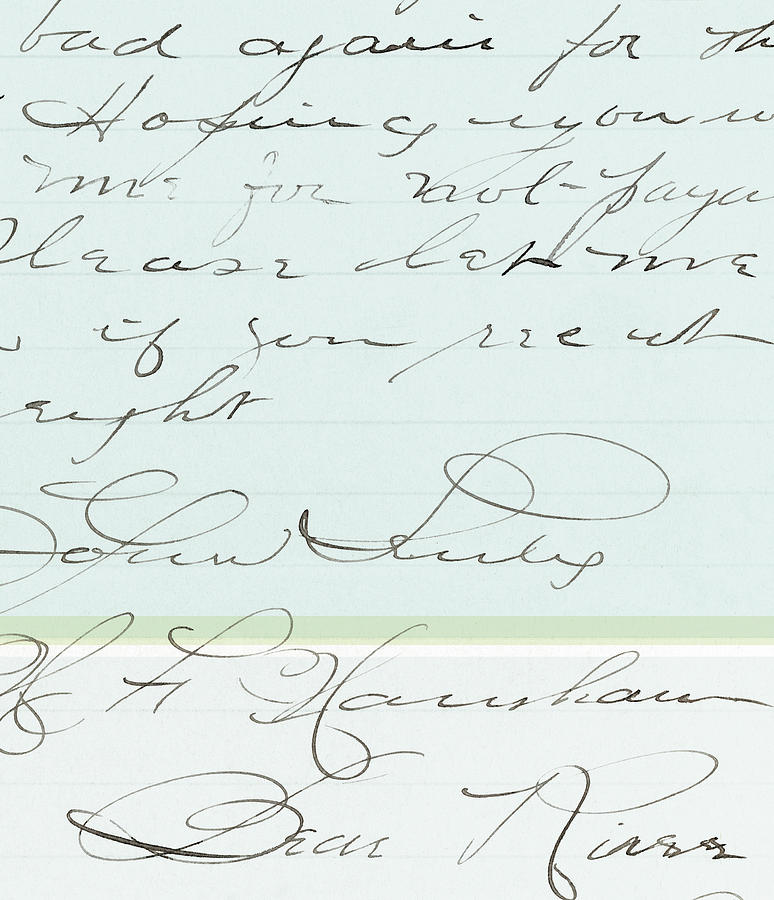 bad again for th
Hoping you w
me for not paya
Please let me
if you rec ut
eight
John
H F Hanshaw
Dear